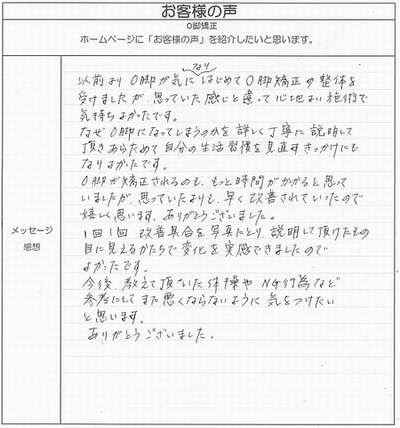 お客様の声
O脚矯正
ホームページに「お客様の声」を紹介したいと思います。
メッセージ
感想
なり
以前よりO脚が気にはじめてO脚矯正の整体を
受けましたが、思っていた感じと違って心地よい施術で
気持ちよかったです。
なぜO脚になってしまうのかを詳しく丁寧に説明して
頂きあらためて自分の生活習慣を見直すきっかけにも
なりよかったです。
O脚が矯正されるのも、もっと時間がかかると思って
いましたが、思っていたよりも、早く改善されていったので
嬉しく思います。ありがとうございました。
1回1回、改善具合を写真にとり、説明して頂けたもの
目に見えるかたちで変化を実感できましたので
よかったです。
今後、教えて頂いた体操やNG行為など
参考にしてまた悪くならないように気をつけたい
と思います。
ありがとうございました。